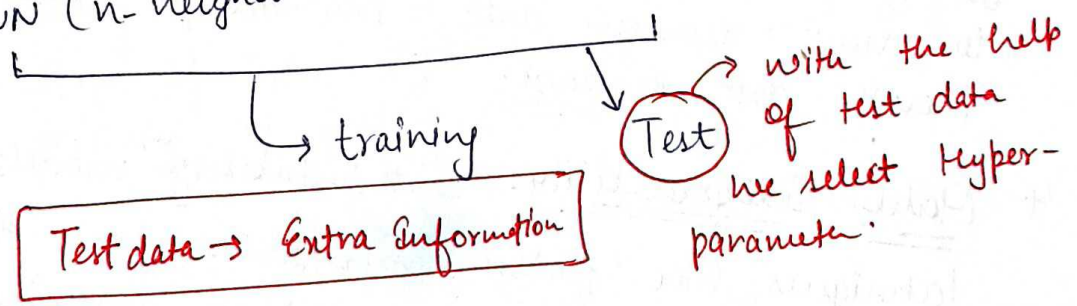 (n-
training
Test
with the help
of test data
we select Hyper-
parameter.
Test data → Extra Information